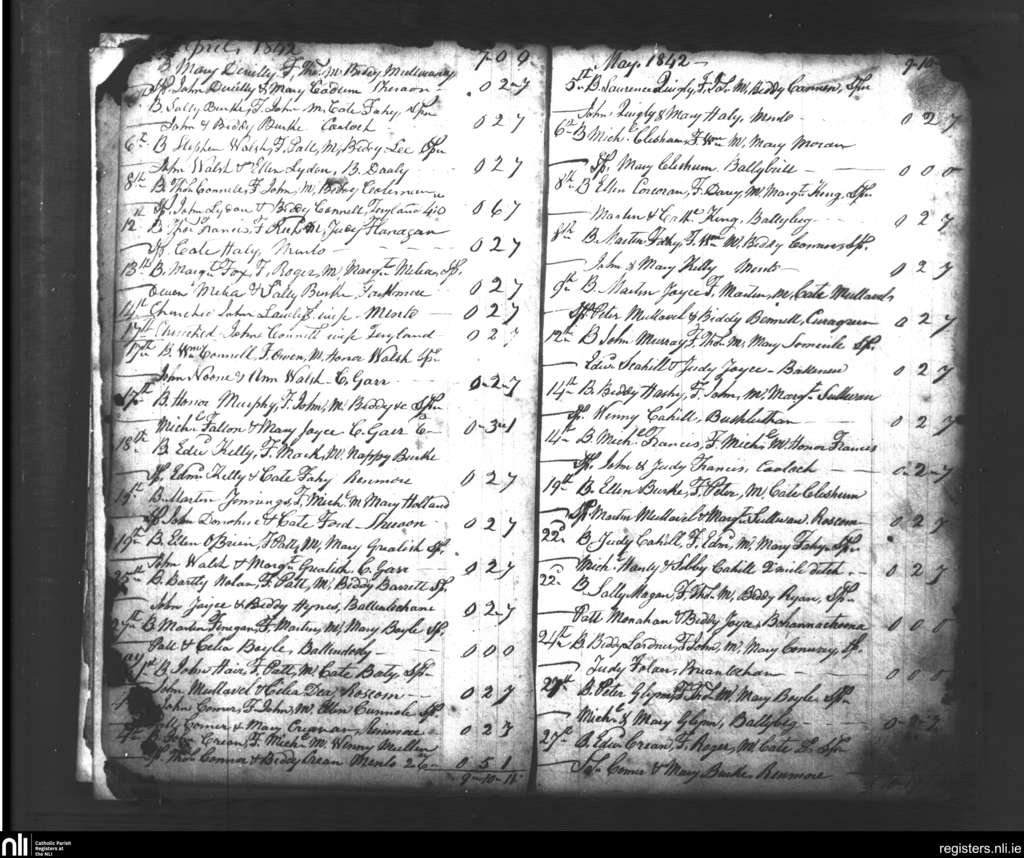 April, 1842 7-0-9
B Mary Devilly, F, Tho. M Biddy Mullowney
Sp. John Devilly & Mary Cadem 0 2-7
B Sally Burke, F. John M, Cate Fahy, Spn
John & Biddy Burke Cooloch 0 2 7
6th B Stephen Walsh, F. Patt, M, Biddy Lee Spn
John Walsh & Ellen Lydon, B. Doaly 0 2 7
8th B Tho. Connell F John, M, Bidny
Sp. John Lydon & Biddy Connell, Inyland 4-0 0 6 7
12 B Tho. Francis, F Richd M, Judy Flanagan
Sp. Cate Haly, Menlo 0 2 7
13th B, Margt. Fox, F, Roger, M, Margt. Melia, Sp.
Owen Melia & Sally Burke 0 2 7
14th Churched John wife - Menlo 0 2 7
17th Churched John Connell wife Inyland 0 2 7
17th B. Wm. Connell, F. Owen, M, Honor Walsh Spn
John Noone & Ann Walsh - C. Garr 0-2-7
17th B Honor Murphy, F, John, M, Biddy &c Spn
Michl. Fallon & Mary Joyce C. Garr 6- 0-3-1
18th B, Edw. Kelly, F. Mark, M, Nappy Burke
Sp. Edmd. Kelly & Cate Fahy Renmore 0 2 7
19th B. Martin Jennings, F, Michl. M Mary Holland
Sp John Donohue & Cate Ford 0 2 7
19th B, Ellen O'Brien, F, Patt, M, Mary Grealish Sp.
John Walsh & Margt. Grealish, C. Garr 0 2 7
25th B, Bartly Nolan, F Patt, M, Biddy Barrett Sp.
John Joyce & Biddy Hynes, 0 2 7
27th B. Martin Finegan, F. Martin, M, Mary Boyle Sp.
Patt & Celia Boyle, 0 0 0
1st B, John Hair, F. Patt, M. Cate Baty Sp
John Mullavel & Celia Dea, Roscom 0 2 7
John Comer, F John, M, Ellen Sp.
Comer & Mary Renmore 0 2 3
4th B. Crean, F. Michl. M, Winny Mullin
Sp. Tho. Connor & Biddy Crean Menlo 2 6 0 5 1
9-10-11
May, 1842 - 9-10-
5th B, Laurence Quigly, F. Tho. M, Biddy Cannon, Spn
John Quigly & Mary Haly, Menlo 0 2 7
6th B Michl. Clesham, F. Wm M, Mary Moran
Sp. Mary Clesham, Ballybrit 0 0 0
8th B Ellen Corcoran, F. Darcy, M, Margt. King, Spn
Martin & Cathe King, Ballybeg 0 2 7
8th B. Martin Fahy, F. Wm M. Biddy Connor Sp.
John & Mary Kelly Menlo 0 2 7
9th B. Martin Joyce F, Martin, M, Cate Mullavel
Sp Peter Mullavel & Biddy Bennell, Curagreen 0 2 7
12th B John Murray F. Tho. M, Mary Somerville Sp.
Edw. Scahill & Judy Joyce - 0 2 7
14th B. Biddy F. John, M, Margt. Sullivan
Sp. Winny Cahill, 0 2 7
14th B, Michl. Francis, F. Michl. M, Honor Francis
Sp. John & Judy Francis, Cooloch 0-2-7
19th B, Ellen Burke, F. Peter, M, Cate Clesham
Sp Martin Mullavel & Margt. Sullivan, Roscom 0 2 7
22d B, Judy Cahill, F. Edmd. M, Mary Fahy Spn
Michl. Hanly & Sibby Cahill 2 mile ditch 0 2 7
22d B. Sally Hogan, F. Tho. M, Biddy Ryan, Sp
Patt Monahan & Biddy Joyce, Bohannacheena 0 0 0
24th B, Biddy Lardner, F John, M, Mary Conway Sp.
Judy Folan, 0 0 0
27th B. Peter Glynn, F. Tho. M, Mary Boyle Sp
Michl. & Mary Glynn, Ballybeg 0-2-7
27th B. Edw. Crean, F, Roger, M, Cate Do Spn
John Comer & Mary Burke, Renmore
nli Catholic Parish Registers at the NLI
registers.nli.ie